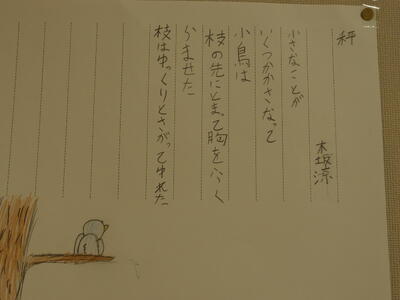 秤
木坂涼
小さなことが
いくつかかさなって
小鳥は
枝の先にとまって胸をふく
らませた
枝はゆっくりとさがってゆれた